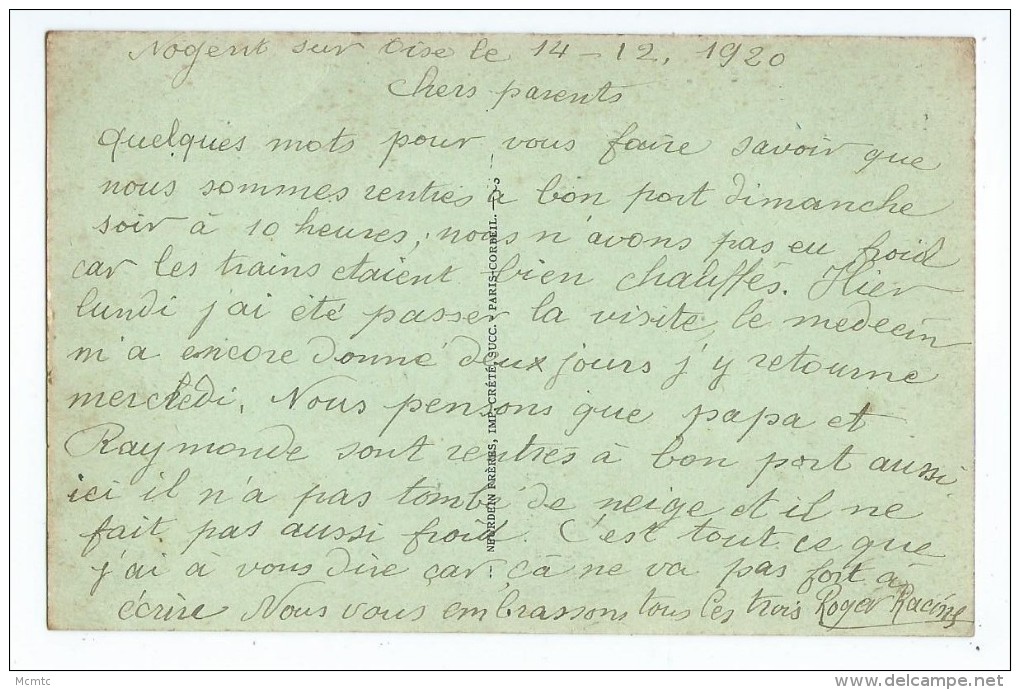 Nogent sur Oise le 14-12, 1920
Chers parents
quelques mots pour vous faire savoir que
nous sommes rentrés à bon port dimanche
soir à 10 heures, nous n'avons pas eu froid
car les trains etaient bien chauffés. Hier
lundi j'ai été passer la visite, le medecin
m'a encore donné deux jours j'y retourne
mercredi. Nous pensons que papa et
Raymonde sont rentrés à bon port aussi
ici il n'a pas tombé de neige et il ne
fait pas aussi froid. C'est tout ce que
j'ai à vous dire car çà ne va pas fort à
écrire Nous vous embrassons tous les trois Roger Racine
NEURDEIN FRÈRES, IMP. CRÉTÉ, SUCC. - PARIS-CORBEIL.
Mcmtc
delcampe.net